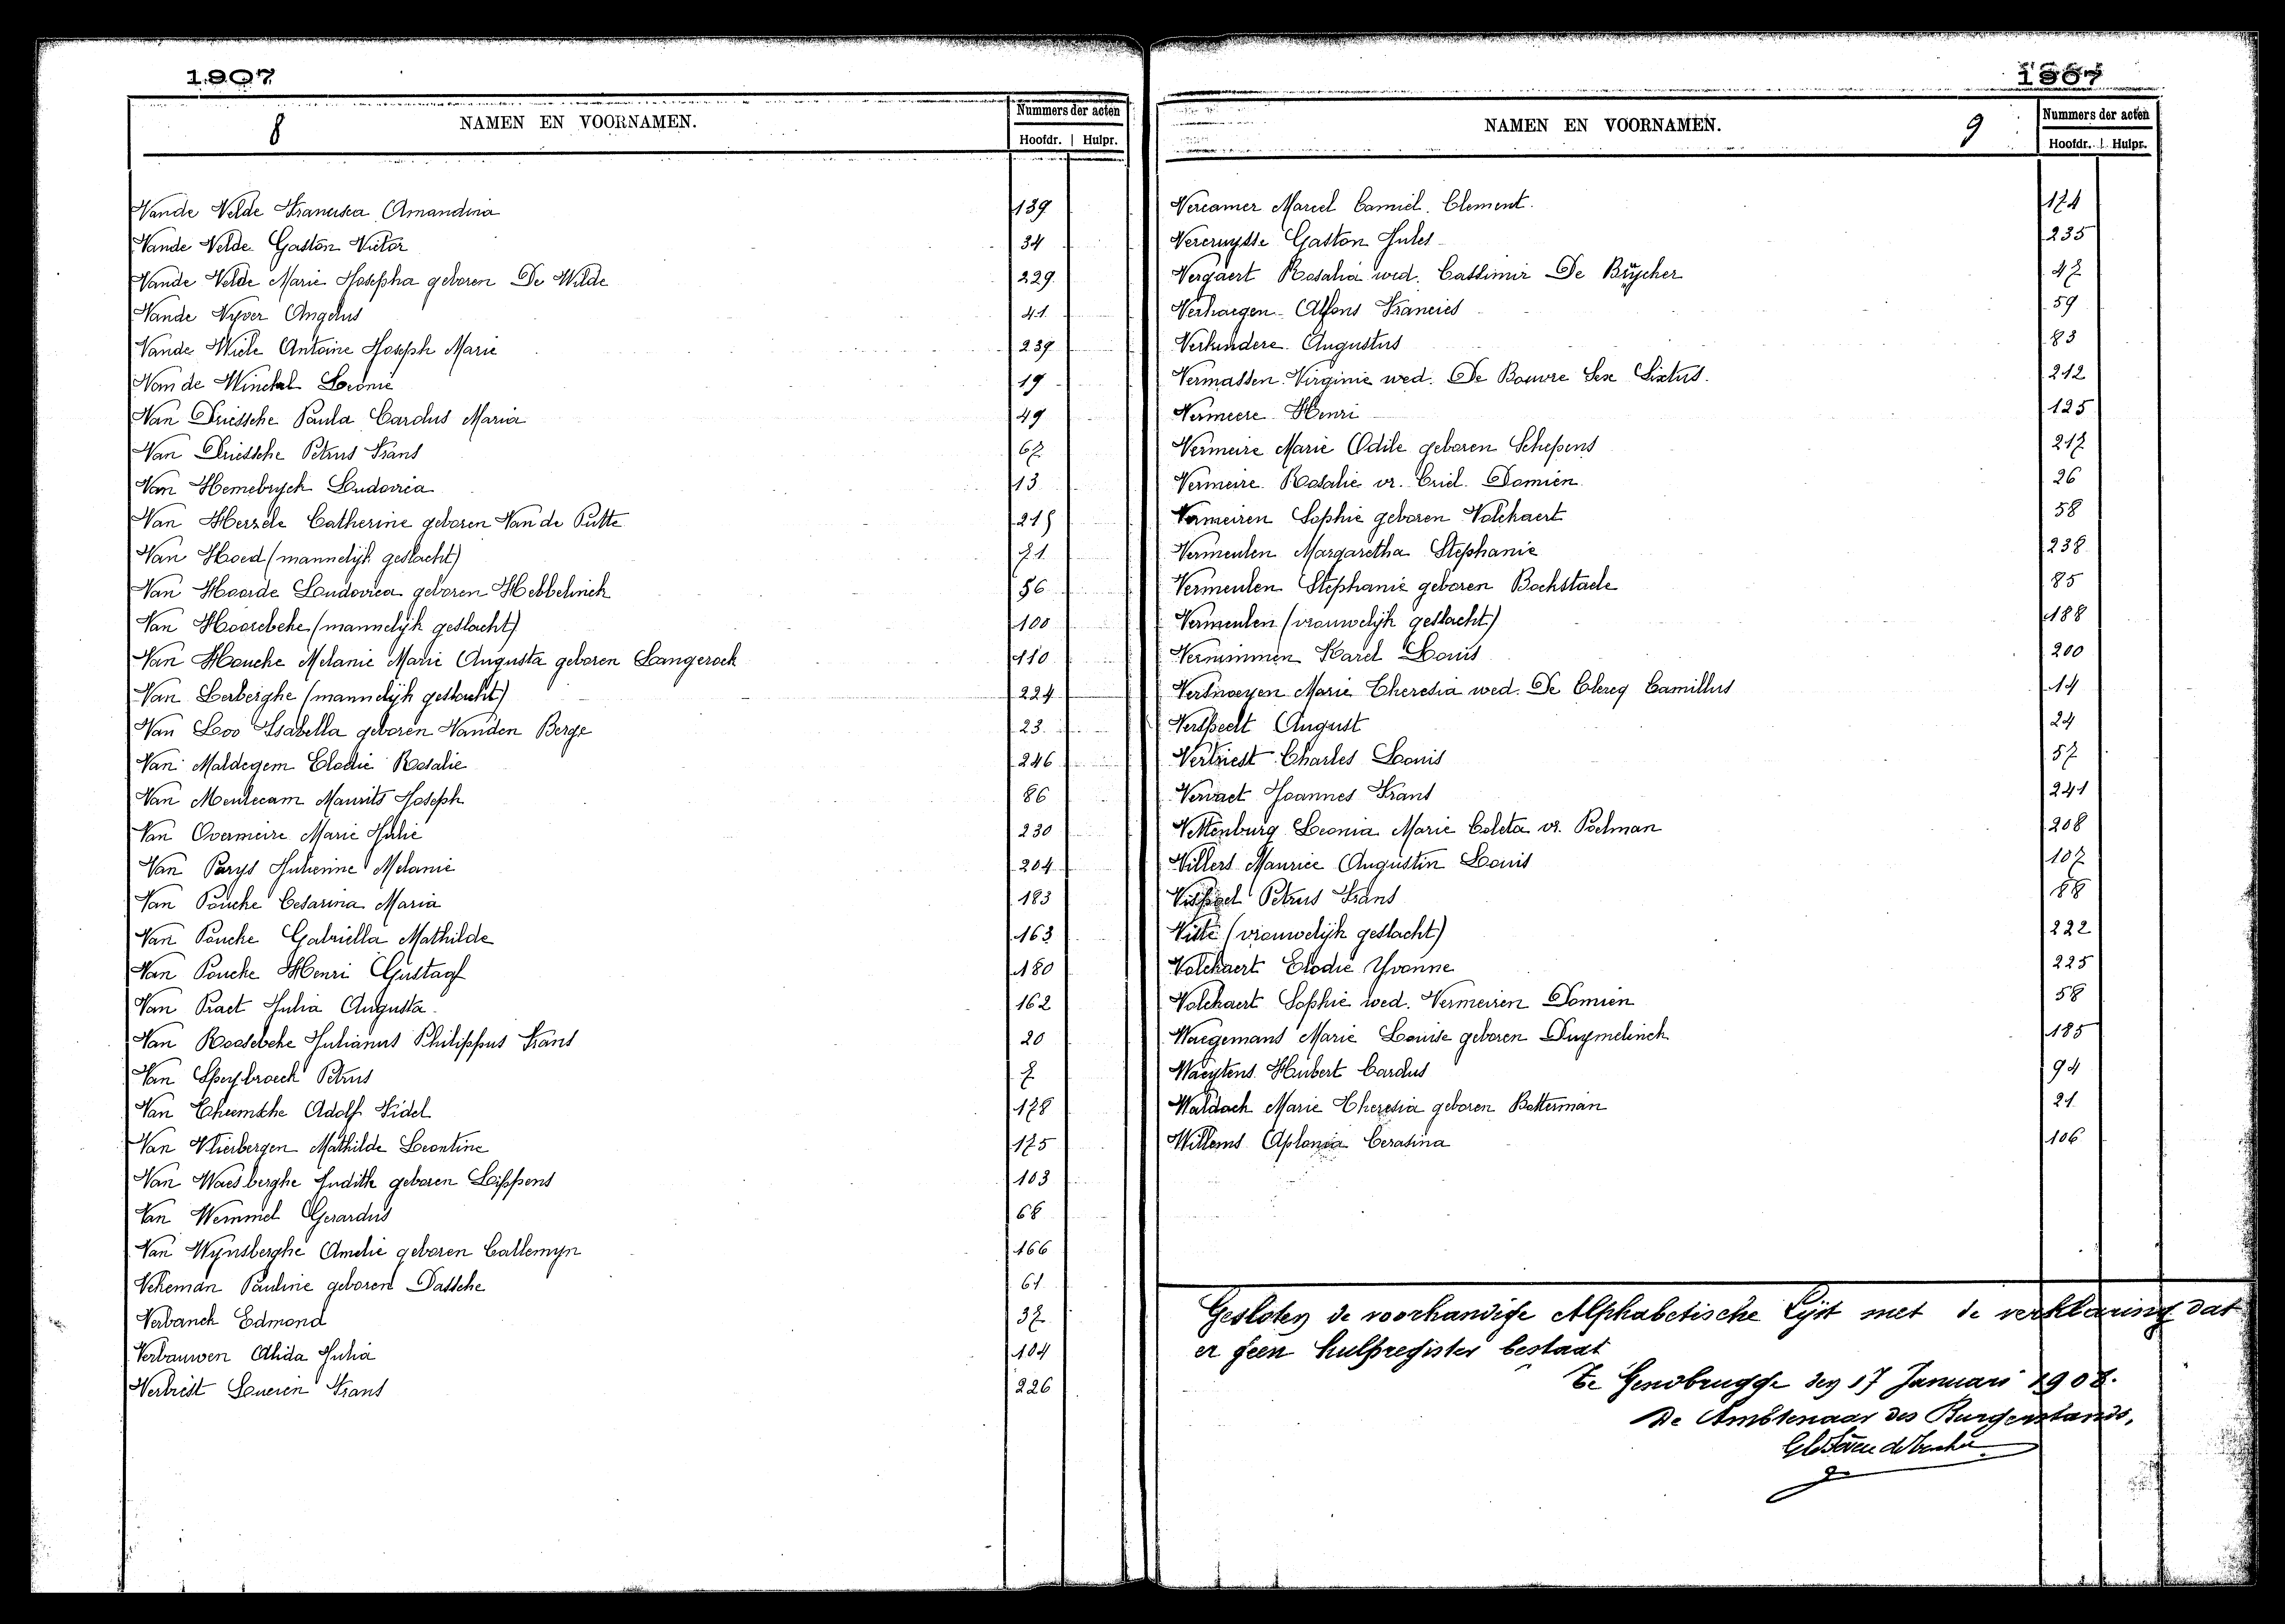 1907
8
NAMEN EN VOORNAMEN.
Nummers der acten
Hoofdr. Hulpr.
Vande Velde Francisca Amandina 139
Vande Velde Gaston Victor 34
Vande Velde Marie Josepha geboren De Wilde 229
Vande Vyver Angelus 41
Vande Wiele Antoine Joseph Marie 239
Van de Winckel Leonie 19
Van Driessche Paula Carolus Maria 49
Van Driessche Petrus Frans 67
Van Hemebryck Ludovica 13
Van Herzele Catherine geboren Van de Putte 215
Van Hoed (mannelijk geslacht) 71
Van Hoorde Ludovica geboren Hebbelinck 56
Van Hoorebeke (mannelijk geslacht) 100
Van Houcke Melanie Marie Augusta geboren Langerock 110
Van Lerberghe (mannelijk geslacht) 224
Van Loo Isabella geboren Vanden Berge 23
Van Maldegem Elodie Rosalie 246
Van Meulecam Maurits Joseph 86
Van Overmeire Marie Julie 230
Van Parys Julienne Melanie 204
Van Poucke Cesarina Maria 183
Van Poucke Gabriella Mathilde 163
Van Poucke Henri Gustaaf 180
Van Praet Julia Augusta 162
Van Roosebeke Julianus Philippus Frans 20
Van Speybroeck Petrus 7
Van Theemsche Adolf Fidel 178
Van Vlierbergen Mathilde Leontine 175
Van Waesberghe Judith geboren Lippens 103
Van Wemmel Gerardus 68
Van Wynsberghe Amelie geboren Callemyn 166
Vekeman Pauline geboren Dassche 61
Verbanck Edmond 37
Verbauwen Alida Julia 104
Verbiest Severin Frans 226
1907
NAMEN EN VOORNAMEN.
9
Nummers der acten
Hoofdr. Hulpr.
Vercamer Marcel Camiel Clement. 174
Vercruysse Gaston Jules 235
Vergaert Rosalia wed. Cassimir De Brÿcker 47
Verhaegen Alfons Francies 59
Verkindere Augustus 83
Vermassen Virginie wed. De Bouvre Sex Sixtus. 212
Vermeere Henri 125
Vermeire Marie Odile geboren Schepens 217
Vermeire Rosalie vr. Criel Domien 26
Vermeiren Sophie geboren Volckaert 58
Vermeulen Margaretha Stephanie 238
Vermeulen Stephanie geboren Bockstaele 85
Vermeulen (vrouwelijk geslacht) 188
Vernimmen Karel Louis 200
Versnoeyen Marie Theresia wed. De Clercq Camillus 14
Verspeelt August 24
Vertriest Charles Louis 57
Vervaet Joannes Frans 241
Vettenburg Leonia Marie Coleta vr. Poelman 208
Villers Maurice Augustin Louis 107
Petrus Frans 88
Vitte (vrouwelijk geslacht) 222
Volckaert Elodie Yvonne 225
Volckaert Sophie wed. Vermeiren Domien 58
Waegemans Marie Louise geboren Duymelinck 185
Waeytens Hubert Carolus 94
Waldack Marie Theresia geboren Batterman 21
Willems Aplonia Cerasina 106
Gesloten de voorhandige Alphabetische Lijst met de verklaring dat
er geen hulpregister bestaat
Te Gendbrugge den 17 Januari 1908.
De Ambtenaar des Burgerstands,